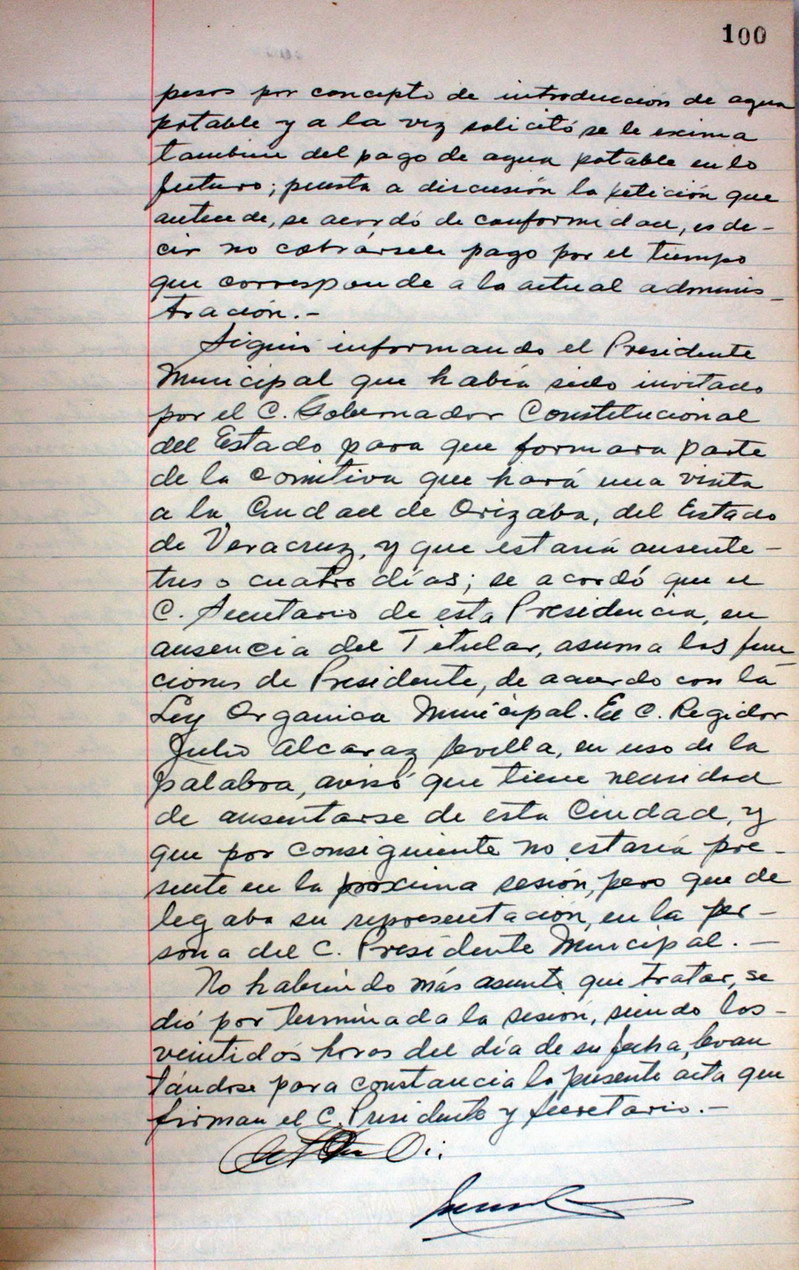 100
pesos por concepto de introducción de agua
potable y a la vez solicitó se le exima
tambien del pago de agua potable en lo
futuro; puesta a discusión la petición que
antecede, se acordó de conformidad, es de-
cir no cobrársele pago por el tiempo
que corresponde a la actual adminis-
tración.-
Siguió informando el Presidente
Municipal que había sido invitado
por el C. Gobernador Constitucional
del Estado para que formara parte
de la comitiva que hará una visita
a la Ciudad de Orizaba, del Estado
de Veracruz, y que estaría ausente-
tres o cuatro días; se acordó que el
C. Secretario de esta Presidencia, en
ausencia del Titular, asuma las fun-
ciones de Presidente, de acuerdo con la
Ley Organica Municipal. El C. Regidor
Julio Alcaraz Sevilla, en uso de la
palabra, avisó que tiene necesidad
de ausentarse de esta Ciudad, y
que por consiguiente no estaría pre-
sente en la próxima sesión, pero que de
legaba su representación, en la per-
sona del C. Presidente Municipal.-
No habiendo más asunto que tratar, se
dió por terminada la sesión, siendo las-
veintidós horas del día de su fecha, levan
tándose para constancia la presente acta que
firman el C. Presidente y Secretario.-